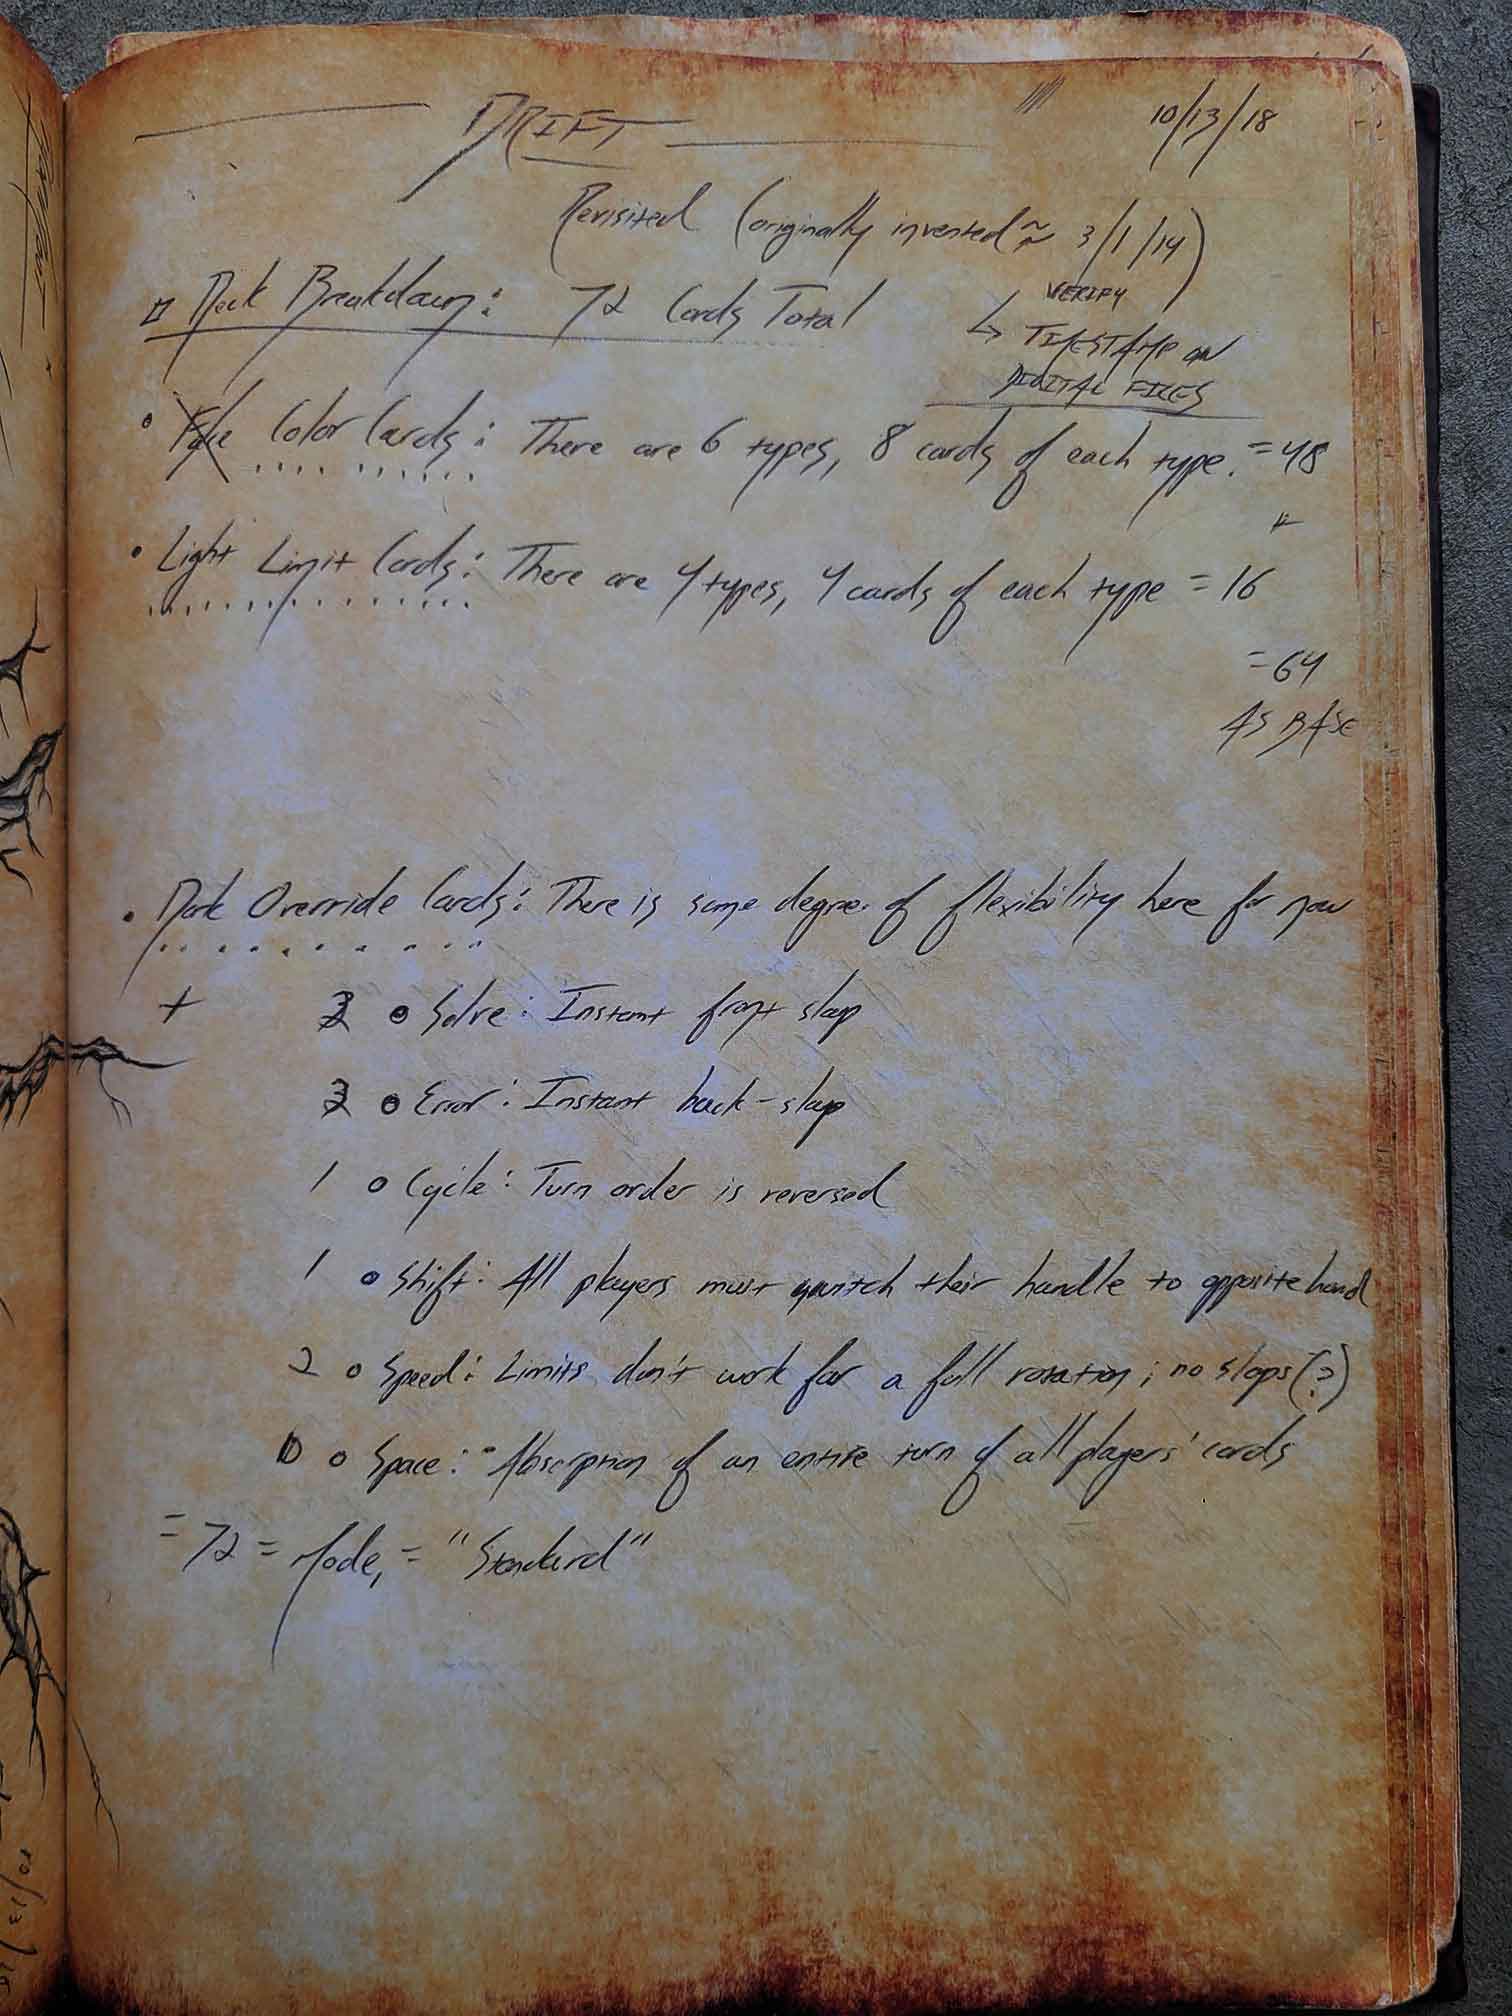 DRIFT
10/13/18
Revisited (originally invented ≈ 3/1/14)
VERIFY
↳ TIMESTAMP ON
DIGITAL FILES
Deck Breakdown: 72 Cards Total
• Color Cards: There are 6 types, 8 cards of each type. = 48
+
• Light Limit Cards: There are 4 types, 4 cards of each type = 16
= 64
AS BASE
• Dark Override Cards: There is some degree of flexibility here for now
+ 2 o Solve: Instant front slap
2 o Error: Instant back-slap
1 o Cycle: Turn order is reversed
1 o Shift: All players must switch their handle to opposite hand
2 o Speed: Limits don't work for a full rotation; no slaps (?)
o Space: Absorption of an entire turn of all players' cards
= 72 = Mode, = "Standard"
10/13/18